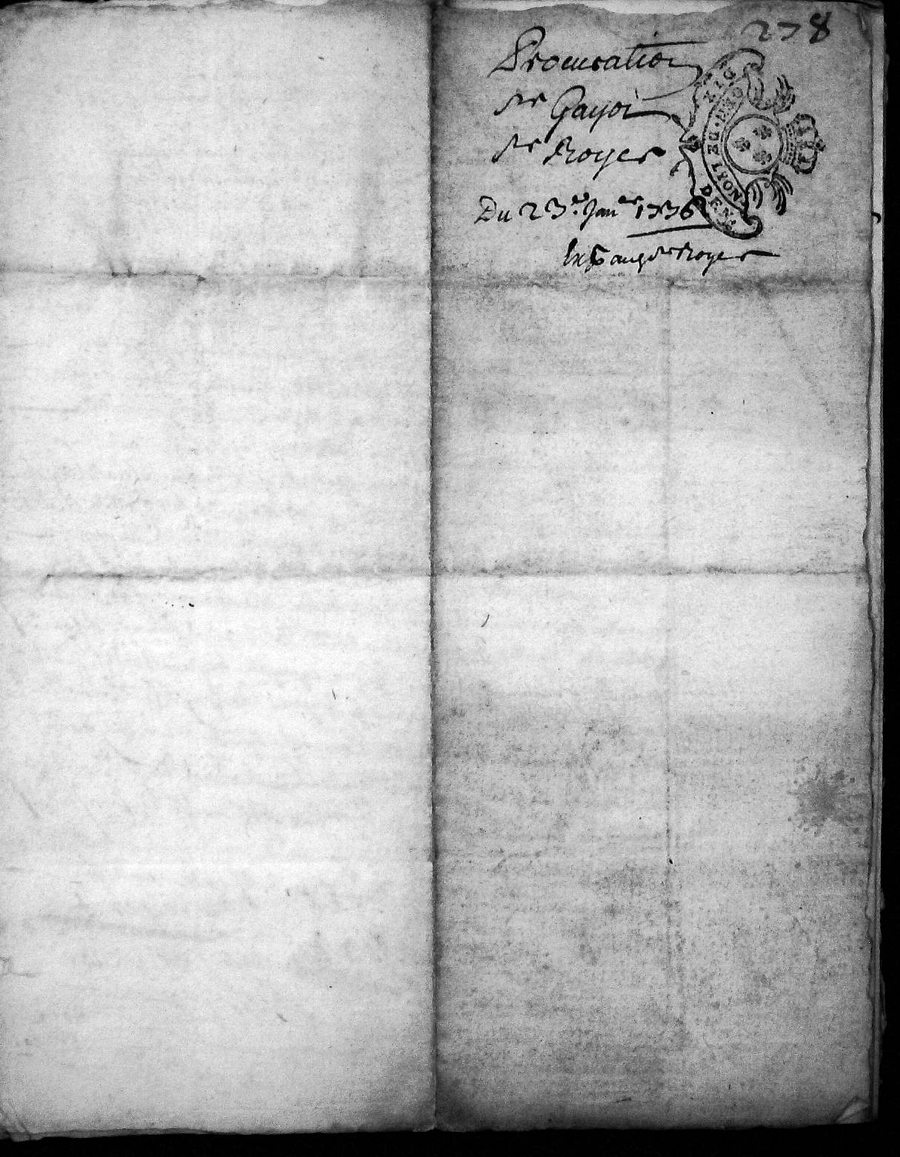 278
Procuration
Sr Gayot
Sr Royer
Du 23e Janer 1736
Exp aud Sr Royer
GEN DE LYON
DEN.